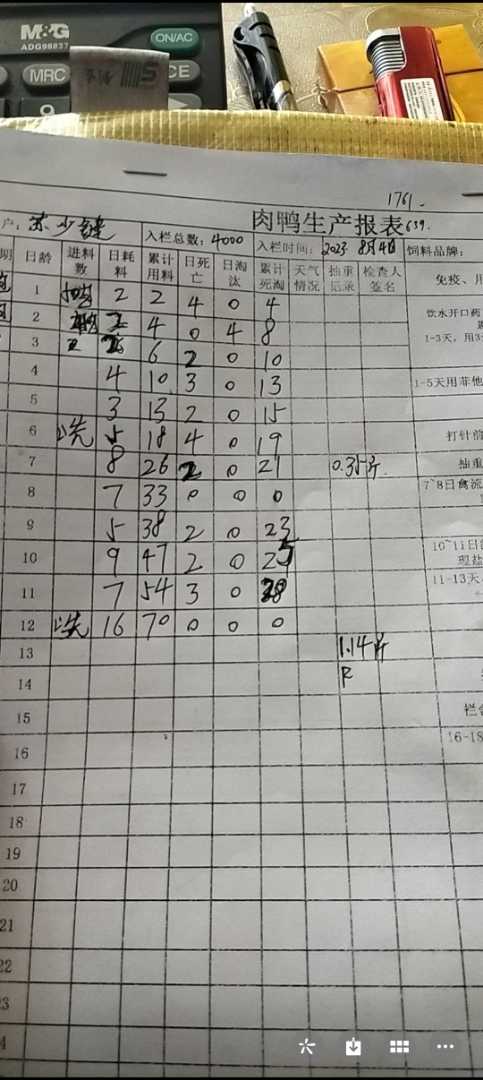 M&G
ADG98837
ON/AC
MRC
CE
9
1761.
户：苏少 入栏总数：4000 肉鸭生产报表 639.
入栏时间：2023 8月4日 饲料品牌：
日龄 进料数 日耗料 累计用料 日死亡 日淘汰 累计死淘 天气情况 抽重记录 检查人签名 免疫、用
1 2 2 4 0 4
饮水开口药
2 2 4 0 4 8
1-3天，用3
3 6 2 0 10
4 4 10 3 0 13
1-5天用菲他
5 3 13 2 0 15
6 洗 5 18 4 0 19 打针前
7 8 26 2 0 21 0.35斤 抽重
7~8日禽流
8 7 33 0 0 0
9 5 38 2 0 23
10 9 47 2 0 25 10~11日
11 7 54 3 0 28 11-13天
12 洗 16 70 0 0 0
13 1.14斤
14 R
15 栏舍
16 16-18
17
18
19
20
21
22
3
4